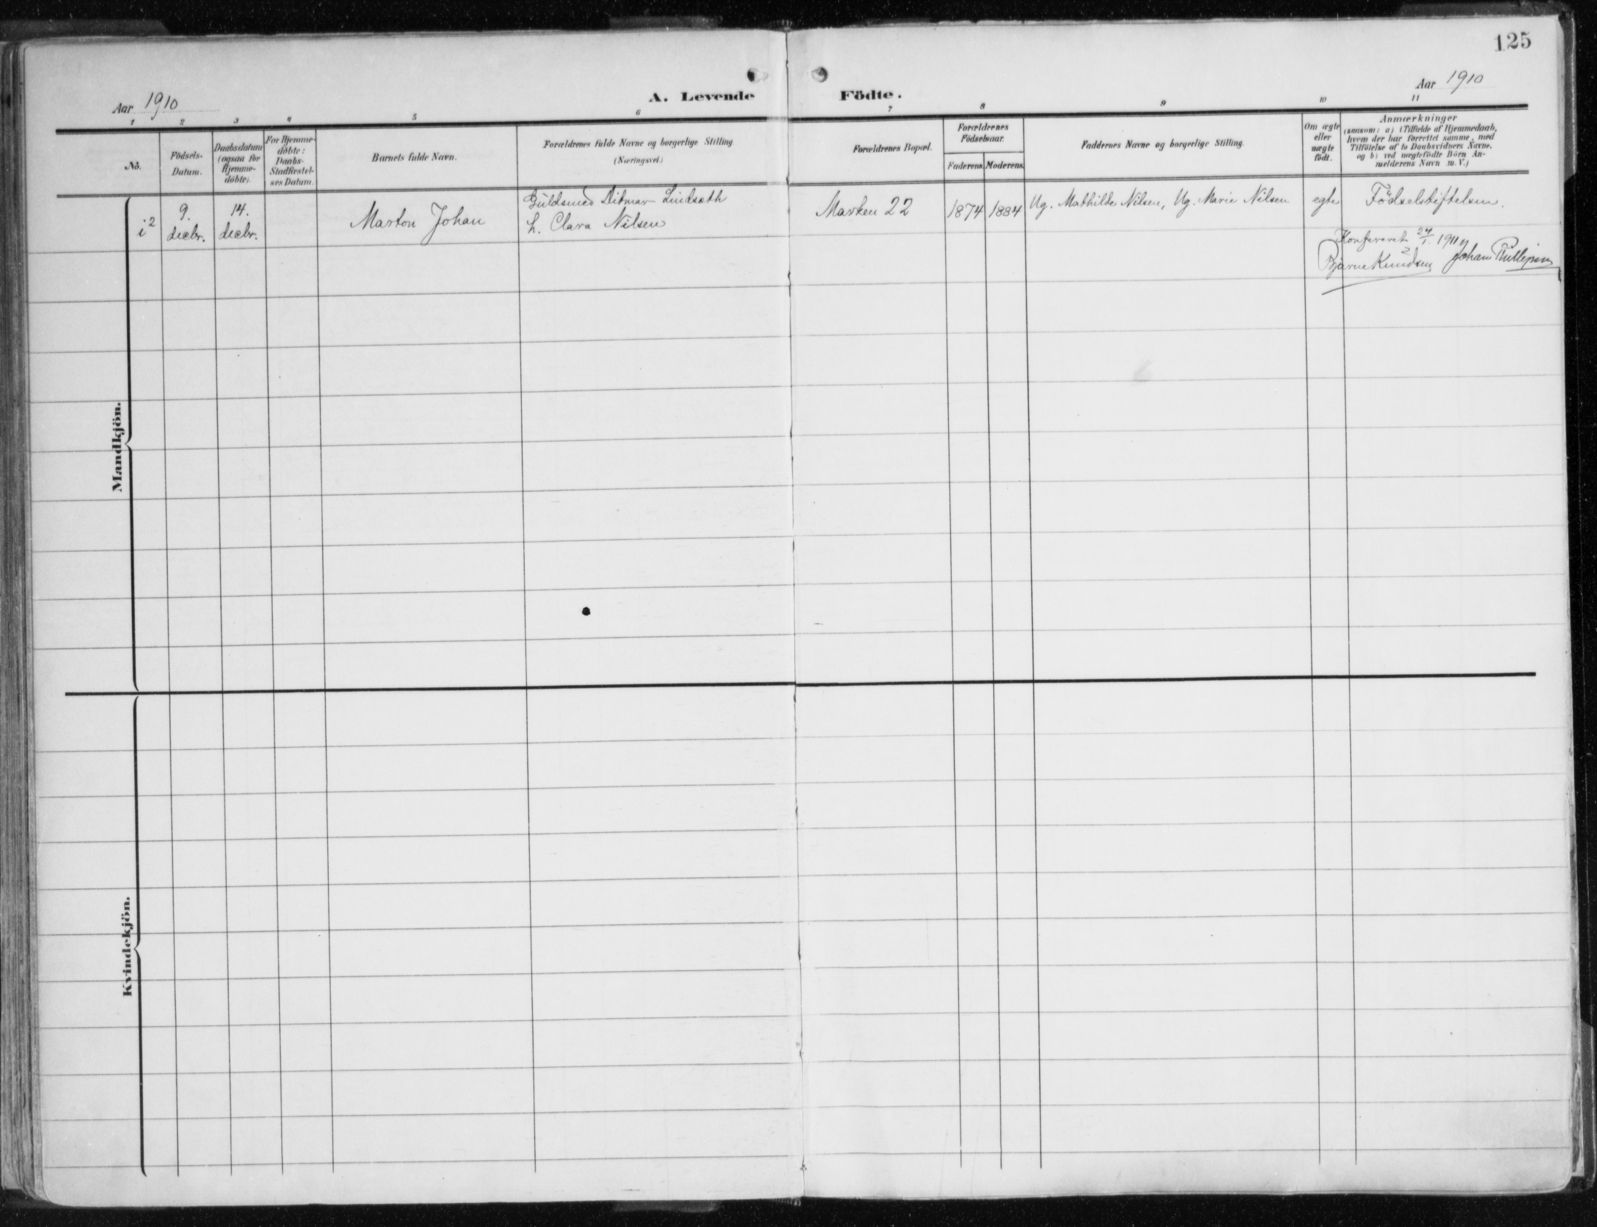 125
Aar 1910
A. Levende Födte.
Aar 1910
1 2 3 4 5 6 7 8 9 10 11
No.
Födsels-
Datum.
Daabsdatum
(ogsaa for
Hjemme-
döbte).
For Hjemme-
döbte:
Daabs-
Stadfæstel-
ses Datum.
Barnets fulde Navn.
Forældrenes fulde Navne og borgerlige Stilling
(Næringsvei.)
Forældrenes Bopæl.
Forældrenes
Födselsaar.
Faderens. Moderens.
Faddernes Navne og borgerlige Stilling
Om ægte
eller
uægte
födt.
Anmærkninger
(saasom: a) i Tilfælde af Hjemmedaab,
hvem der har forrettet samme, med
Tilföielse af to Daabsvidners Navne,
og b) ved uægtefödte Börn An-
melderens Navn m. V.)
Mandkjön.
9.
decbr.
14.
decbr.
Marton Johan
Guldsmed Ditmar Lindsæth
h. Clara Nilsen
Marken 22
1874
1884
Ug. Mathilde Nilsen, Ug. Marie Nilsen
egte
Födselsstiftelsen.
Konfereret 24/1 1911
Bjarne Knudsen Johan
Kvindekjön.